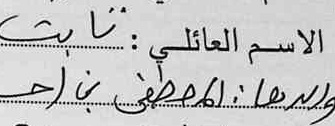 الاسم العائلي : ثابت
والدها : المصطفى بن احـ